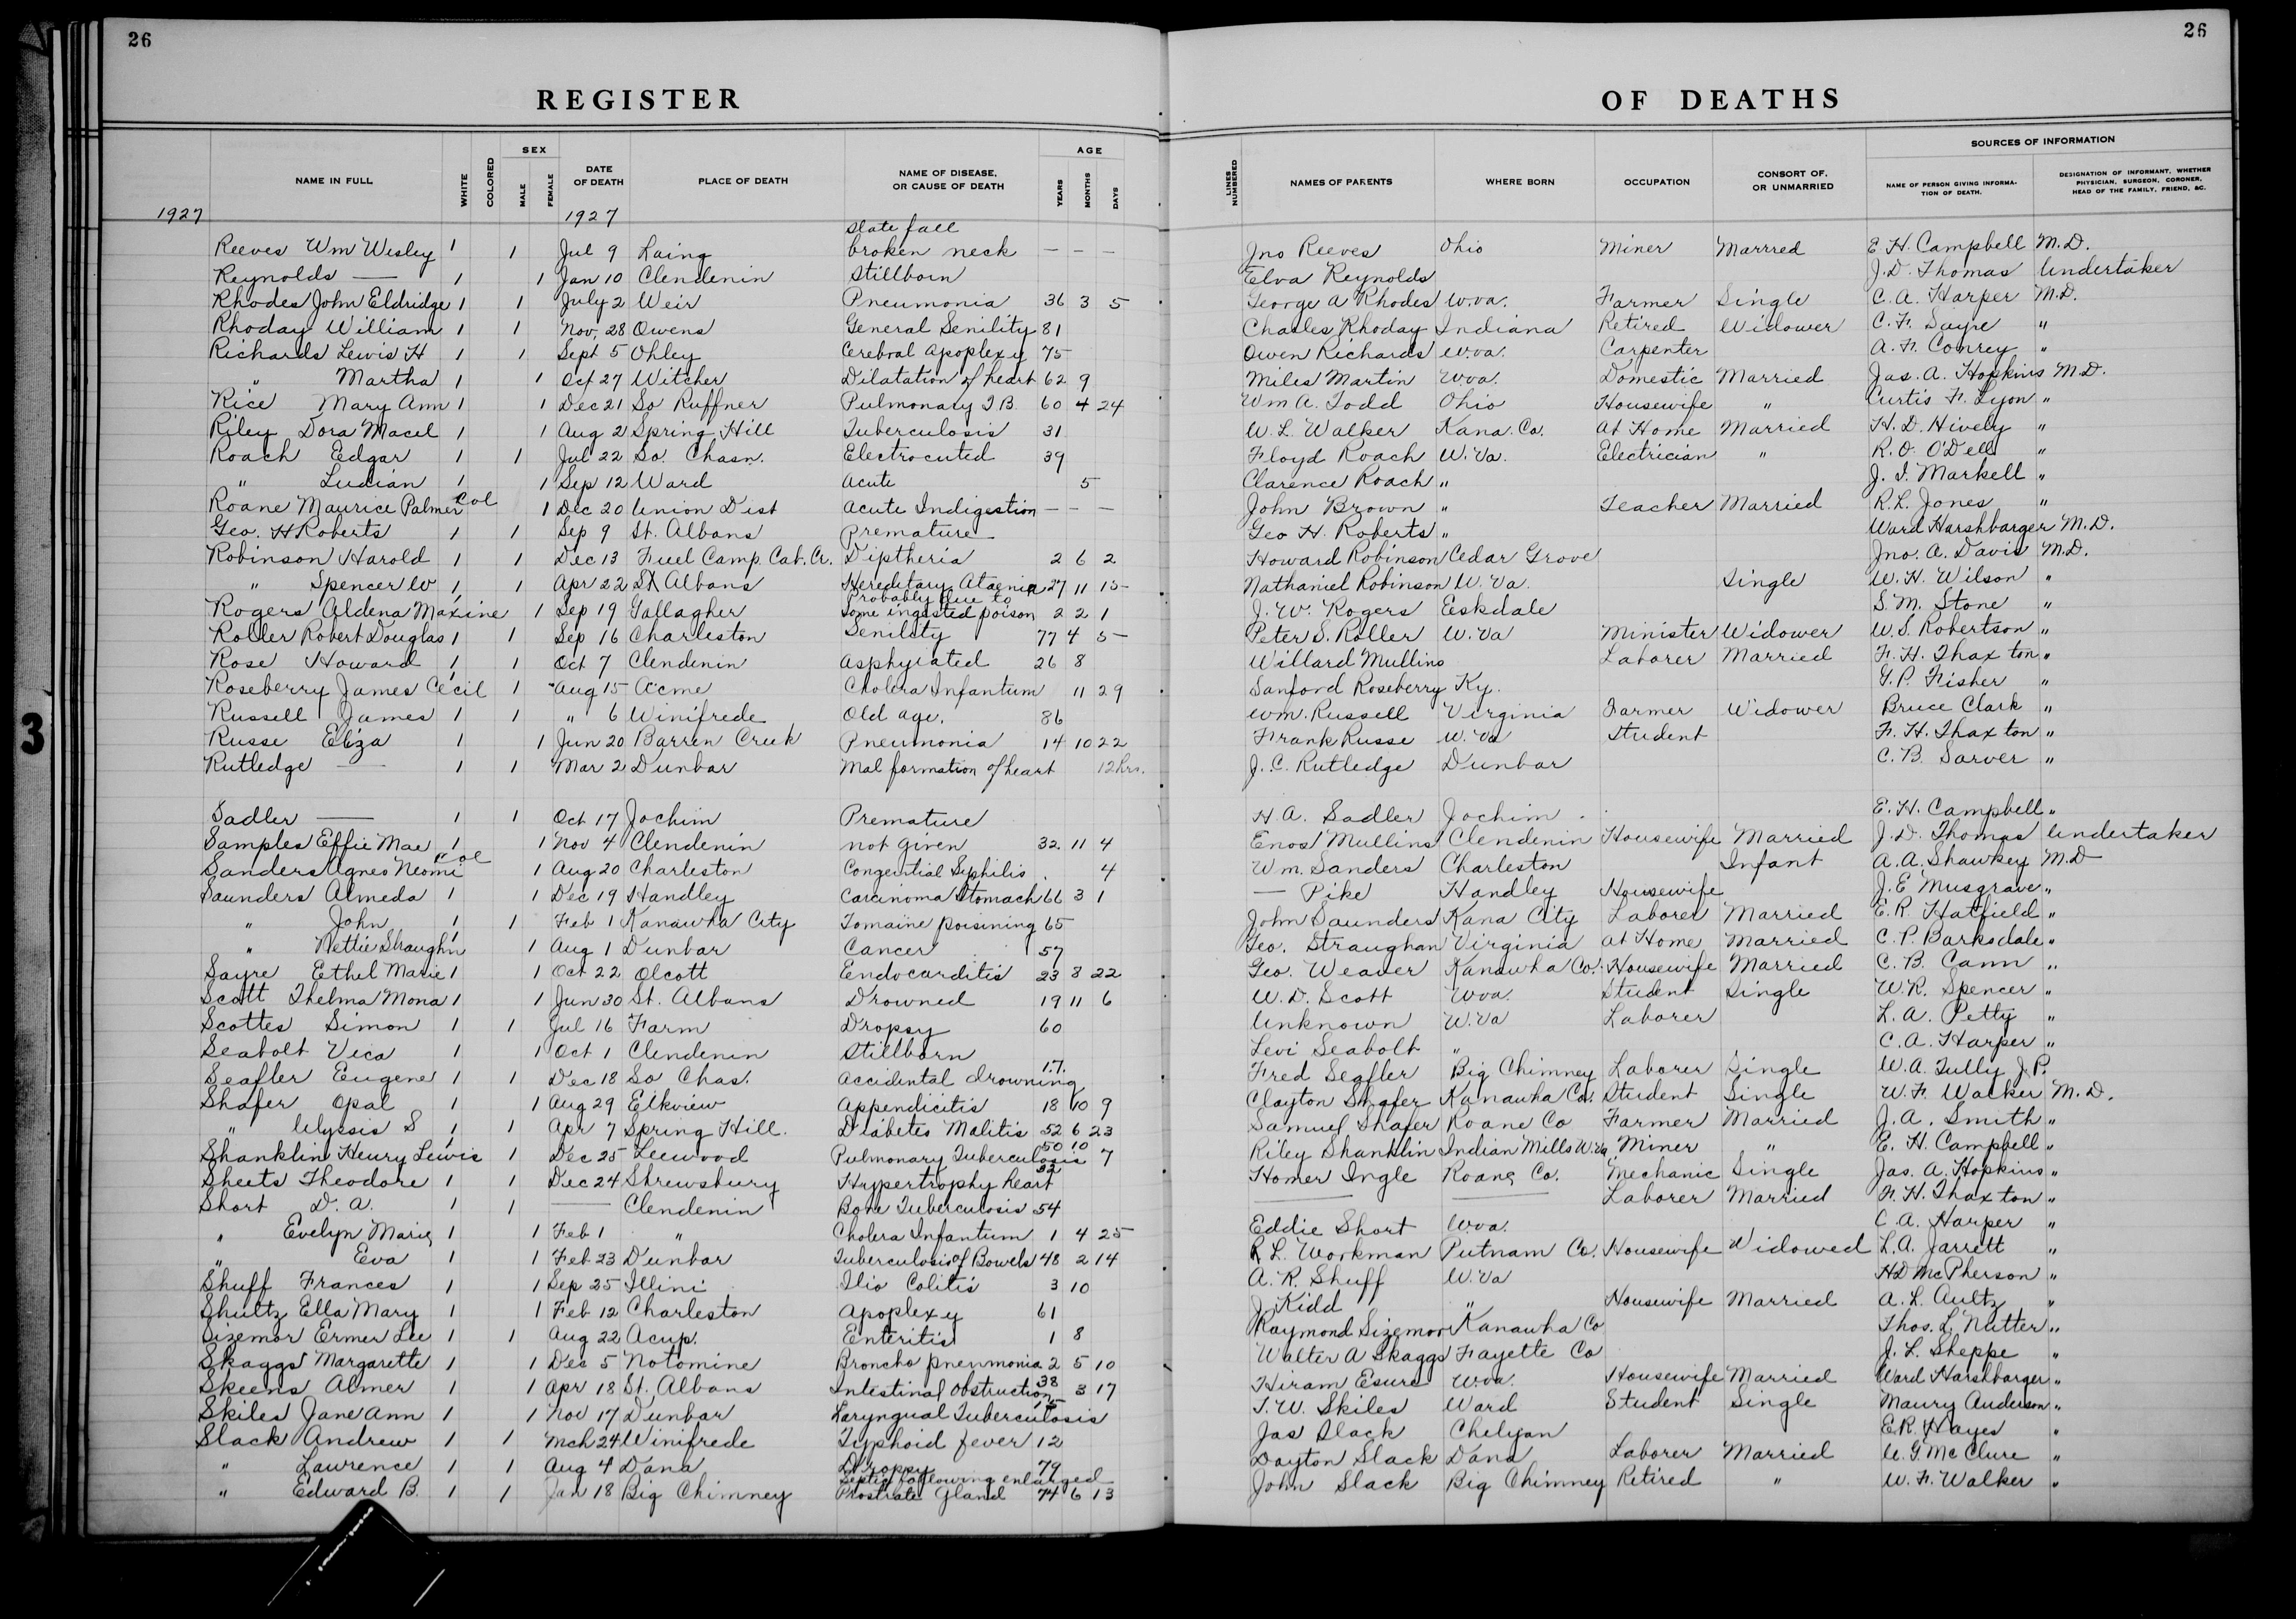 26
26
REGISTER OF DEATHS
NAME IN FULL WHITE COLORED SEX MALE FEMALE DATE OF DEATH PLACE OF DEATH NAME OF DISEASE, OR CAUSE OF DEATH AGE YEARS MONTHS DAYS LINES NUMBERED NAMES OF PARENTS WHERE BORN OCCUPATION CONSORT OF, OR UNMARRIED SOURCES OF INFORMATION NAME OF PERSON GIVING INFORMATION OF DEATH. DESIGNATION OF INFORMANT, WHETHER PHYSICIAN, SURGEON, CORONER, HEAD OF THE FAMILY, FRIEND, &C.
1927 1927
Reeves Wm Wesley 1 1 Jul 9 Laing slate fall broken neck — — — Jno Reeves Ohio Miner Marrred E. H. Campbell M.D.
Reynolds — 1 1 Jan 10 Clendenin Stillborn Elva Reynolds J. D. Thomas Undertaker
Rhodes John Eldridge 1 1 July 2 Weir Pneumonia 36 3 5 George A Rhodes W.va. Farmer Single C. A. Harper M.D.
Rhoday William 1 1 Nov. 28 Owens General Senility 81 Charles Rhoday Indiana Retired Widower C. F. Sayre "
Richards Lewis H 1 1 Sept 5 Ohley Cerebral apoplexy 75 Owen Richards W.va. Carpenter A. F. Conrey "
" Martha 1 1 Oct 27 Witcher Dilatation of heart 62 9 Miles Martin W.va. Domestic Married Jas. A. Hopkins M.D.
Rice Mary Ann 1 1 Dec 21 So Ruffner Pulmonary T.B. 60 4 24 Wm A. Todd Ohio Housewife " Curtis F. Lyon "
Riley Dora Macel 1 1 Aug 2 Spring Hill Tuberculosis 31 W. L. Walker Kana. Co. at Home Married H. D. Hively "
Roach Edgar 1 1 Jul 22 So. Chasn. Electrocuted 39 Floyd Roach W.Va. Electrician " R. O. O'Dell "
" Lucian 1 1 Sep 12 Ward Acute 5 Clarence Roach " J. I. Markell "
Roane Maurice Palmer Col 1 Dec 20 Union Dist Acute Indigestion — — — John Brown " Teacher Married R. L. Jones "
Geo. H Roberts 1 1 Sep 9 St. Albans Premature Geo H. Roberts " Ward Harshbarger M.D.
Robinson Harold 1 1 Dec 13 Fuel Camp. Cab. Cr. Diptheria 2 6 2 Howard Robinson Cedar Grove Jno. A. Davis M.D.
" Spencer W 1 1 Apr 22 St Albans Hereditary Ataenia 27 11 15 Nathaniel Robinson W.Va. Single W. H. Wilson "
Rogers Aldena Maxine 1 1 Sep 19 Gallagher Probably due to some ingested poison 2 2 1 J. W. Rogers Eskdale S. M. Stone "
Roller Robert Douglas 1 1 Sep 16 Charleston Senility 77 4 5 Peter S. Roller W.Va Minister Widower W. S. Robertson "
Rose Howard 1 1 Oct 7 Clendenin Asphyiated 26 8 Willard Mullins Laborer Married F. H. Thaxton "
Roseberry James Cecil 1 Aug 15 Acme Cholera Infantum 11 29 Sanford Roseberry Ky. G. P. Fisher "
Russell James 1 1 " 6 Winifrede Old age. 86 Wm. Russell Virginia Farmer Widower Bruce Clark "
Russe Eliza 1 1 Jun 20 Barren Creek Pneumonia 14 10 22 Frank Russe W.Va Student F. H. Thaxton "
Rutledge — 1 1 Mar 2 Dunbar Mal formation of heart 12 hrs. J. C. Rutledge Dunbar C. B. Sarver "
Sadler — 1 1 Oct 17 Jochim Premature H. A. Sadler Jochim E. H. Campbell "
Samples Effie Mae 1 1 Nov 4 Clendenin not given 32. 11 4 Enos Mullins Clendenin Housewife Married J. D. Thomas Undertaker
Sanders Agnes Neomi Col 1 Aug 20 Charleston Congenital Syphilis 4 Wm. Sanders Charleston Infant A. A. Shawkey M.D
Saunders Almeda 1 1 Dec 19 Handley Carcinoma Stomach 66 3 1 — Pike Handley Housewife J. E Musgrave "
" John 1 1 Feb 1 Kanawha City Tomaine poisining 65 John Saunders Kana City Laborer Married E. R. Hatfield "
" Nettie Straughn 1 1 Aug 1 Dunbar Cancer 57 Geo. Straughan Virginia at Home Married C. P. Barksdale "
Sayre Ethel Marie 1 1 Oct 22 Olcott Endocarditis 23 8 22 Geo. Weaver Kanawha Co. Housewife Married C. B. Cann "
Scott Thelma Mona 1 1 Jun 30 St. Albans Drowned 19 11 6 W. D. Scott W.va. Student Single W. R. Spencer "
Scottes Simon 1 1 Jul 16 Farm Dropsy 60 Unknown W.Va Laborer L. A. Petty "
Seabolt Vica 1 1 Oct 1 Clendenin Stillborn Levi Seabolt " C. A. Harper "
Seafler Eugene 1 1 Dec 18 So Chas. Accidental drowning 17. Fred Seafler Big Chimney Laborer Single W. A. Tully J.P.
Shafer Opal 1 1 Aug 29 Elkview Appendicitis 18 10 9 Clayton Shafer Kanawha Co. Student Single W. F. Walker M.D.
" Ulyssis S 1 1 Apr 7 Spring Hill. Diabetes Malitis 52 6 23 Samuel Shafer Roane Co Farmer Married J. A. Smith "
Shanklin Henry Lewis 1 Dec 25 Leewood Pulmonary Tuberculosis 50 10 7 Riley Shanklin Indian Mills W.Va Miner " E. H. Campbell "
Sheets Theodore 1 1 Dec 24 Shrewsbury Hypertrophy heart 33 Homer Ingle Roane Co. Mechanic Single Jas. A. Hopkins "
Short D. A. 1 1 — Clendenin Bone Tuberculosis 54 — — Laborer Married F. H. Thaxton "
" Evelyn Marie 1 1 Feb 1 " Cholera Infantum 1 4 25 Eddie Short W.va. C. A. Harper "
" Eva 1 1 Feb 23 Dunbar Tuberculosis of Bowels 48 2 14 R. L. Workman Putnam Co. Housewife Widowed L. A. Jarrett "
Shuff Frances 1 1 Sep 25 Illini Ilio Colitis 3 10 A. R. Shuff W.Va H D McPherson "
Shultz Ella Mary 1 1 Feb 12 Charleston Apoplexy 61 J. Kidd " Housewife Married A. L. Aultz "
Sizemor Ermer Lee 1 1 Aug 22 Acup. Enteritis 1 8 Raymond Sizemoor Kanawha Co Thos. L. Nutter "
Skaggs Margarette 1 1 Dec 5 Notomine Broncho pneumonia 2 5 10 Walter A Skaggs Fayette Co J. L. Sheppe "
Skeens Almer 1 1 Apr 18 St. Albans Intestinal Obstruction 38 3 17 Hiram Esure W.va. Housewife Married Ward Harshbarger "
Skiles Jane Ann 1 1 Nov 17 Dunbar Laryngual Tuberculosis T. W. Skiles Ward Student Single Maury Anderson "
Slack Andrew 1 1 Mch 24 Winifrede Typhoid fever 12 Jas Slack Chelyan E R. Hayes "
" Lawrence 1 1 Aug 4 Dana Dropsy 79 Dayton Slack Dana Laborer Married U. G. McClure "
" Edward B. 1 1 Jan 18 Big Chimney Septic following enlarged Prostrate Gland 74 6 13 John Slack Big Chimney Retired " W. F. Walker "
3